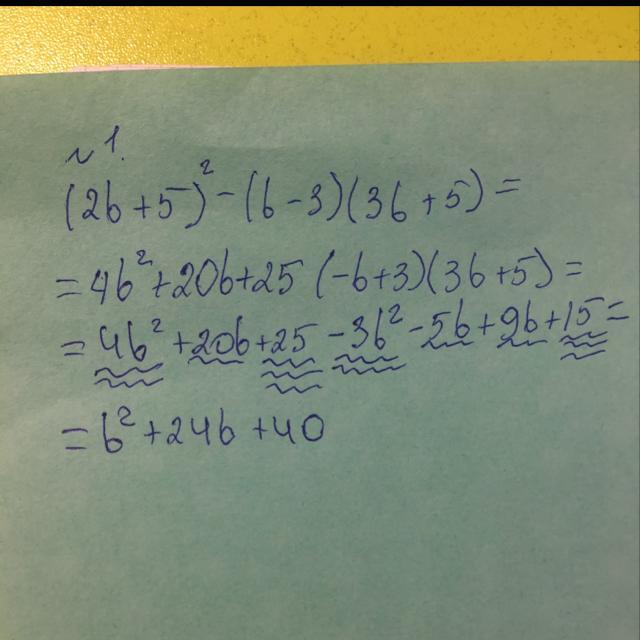 №1.
(2b+5)²-(b-3)(3b+5)=
=4b²+20b+25(-b+3)(3b+5)=
=4b²+20b+25-3b²-5b+9b+15=
=b²+24b+40